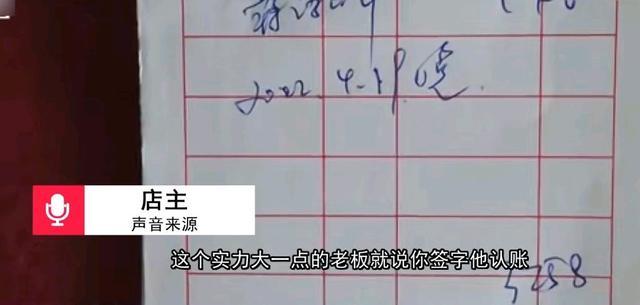 2022.4.19.晓
店主
声音来源
这个实力大一点的老板就说你签字他认账
5258